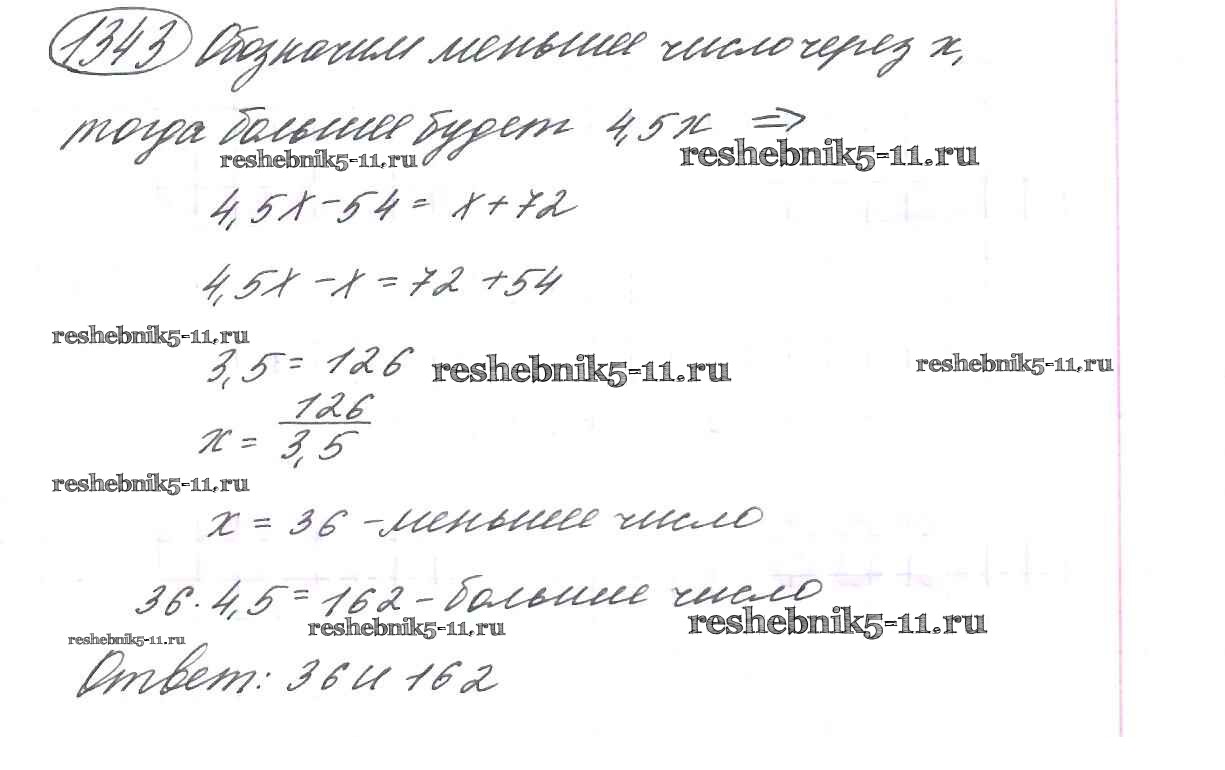 1343 Обозначим меньшее число через x,
тогда большее будет 4,5x ⇒
reshebnik5-11.ru reshebnik5-11.ru
4,5x - 54 = x + 72
4,5x - x = 72 + 54
reshebnik5-11.ru
3,5 = 126 reshebnik5-11.ru reshebnik5-11.ru
x = 126/3,5
reshebnik5-11.ru
x = 36 - меньшее число
36 · 4,5 = 162 - большее число
reshebnik5-11.ru reshebnik5-11.ru reshebnik5-11.ru
Ответ: 36 и 162